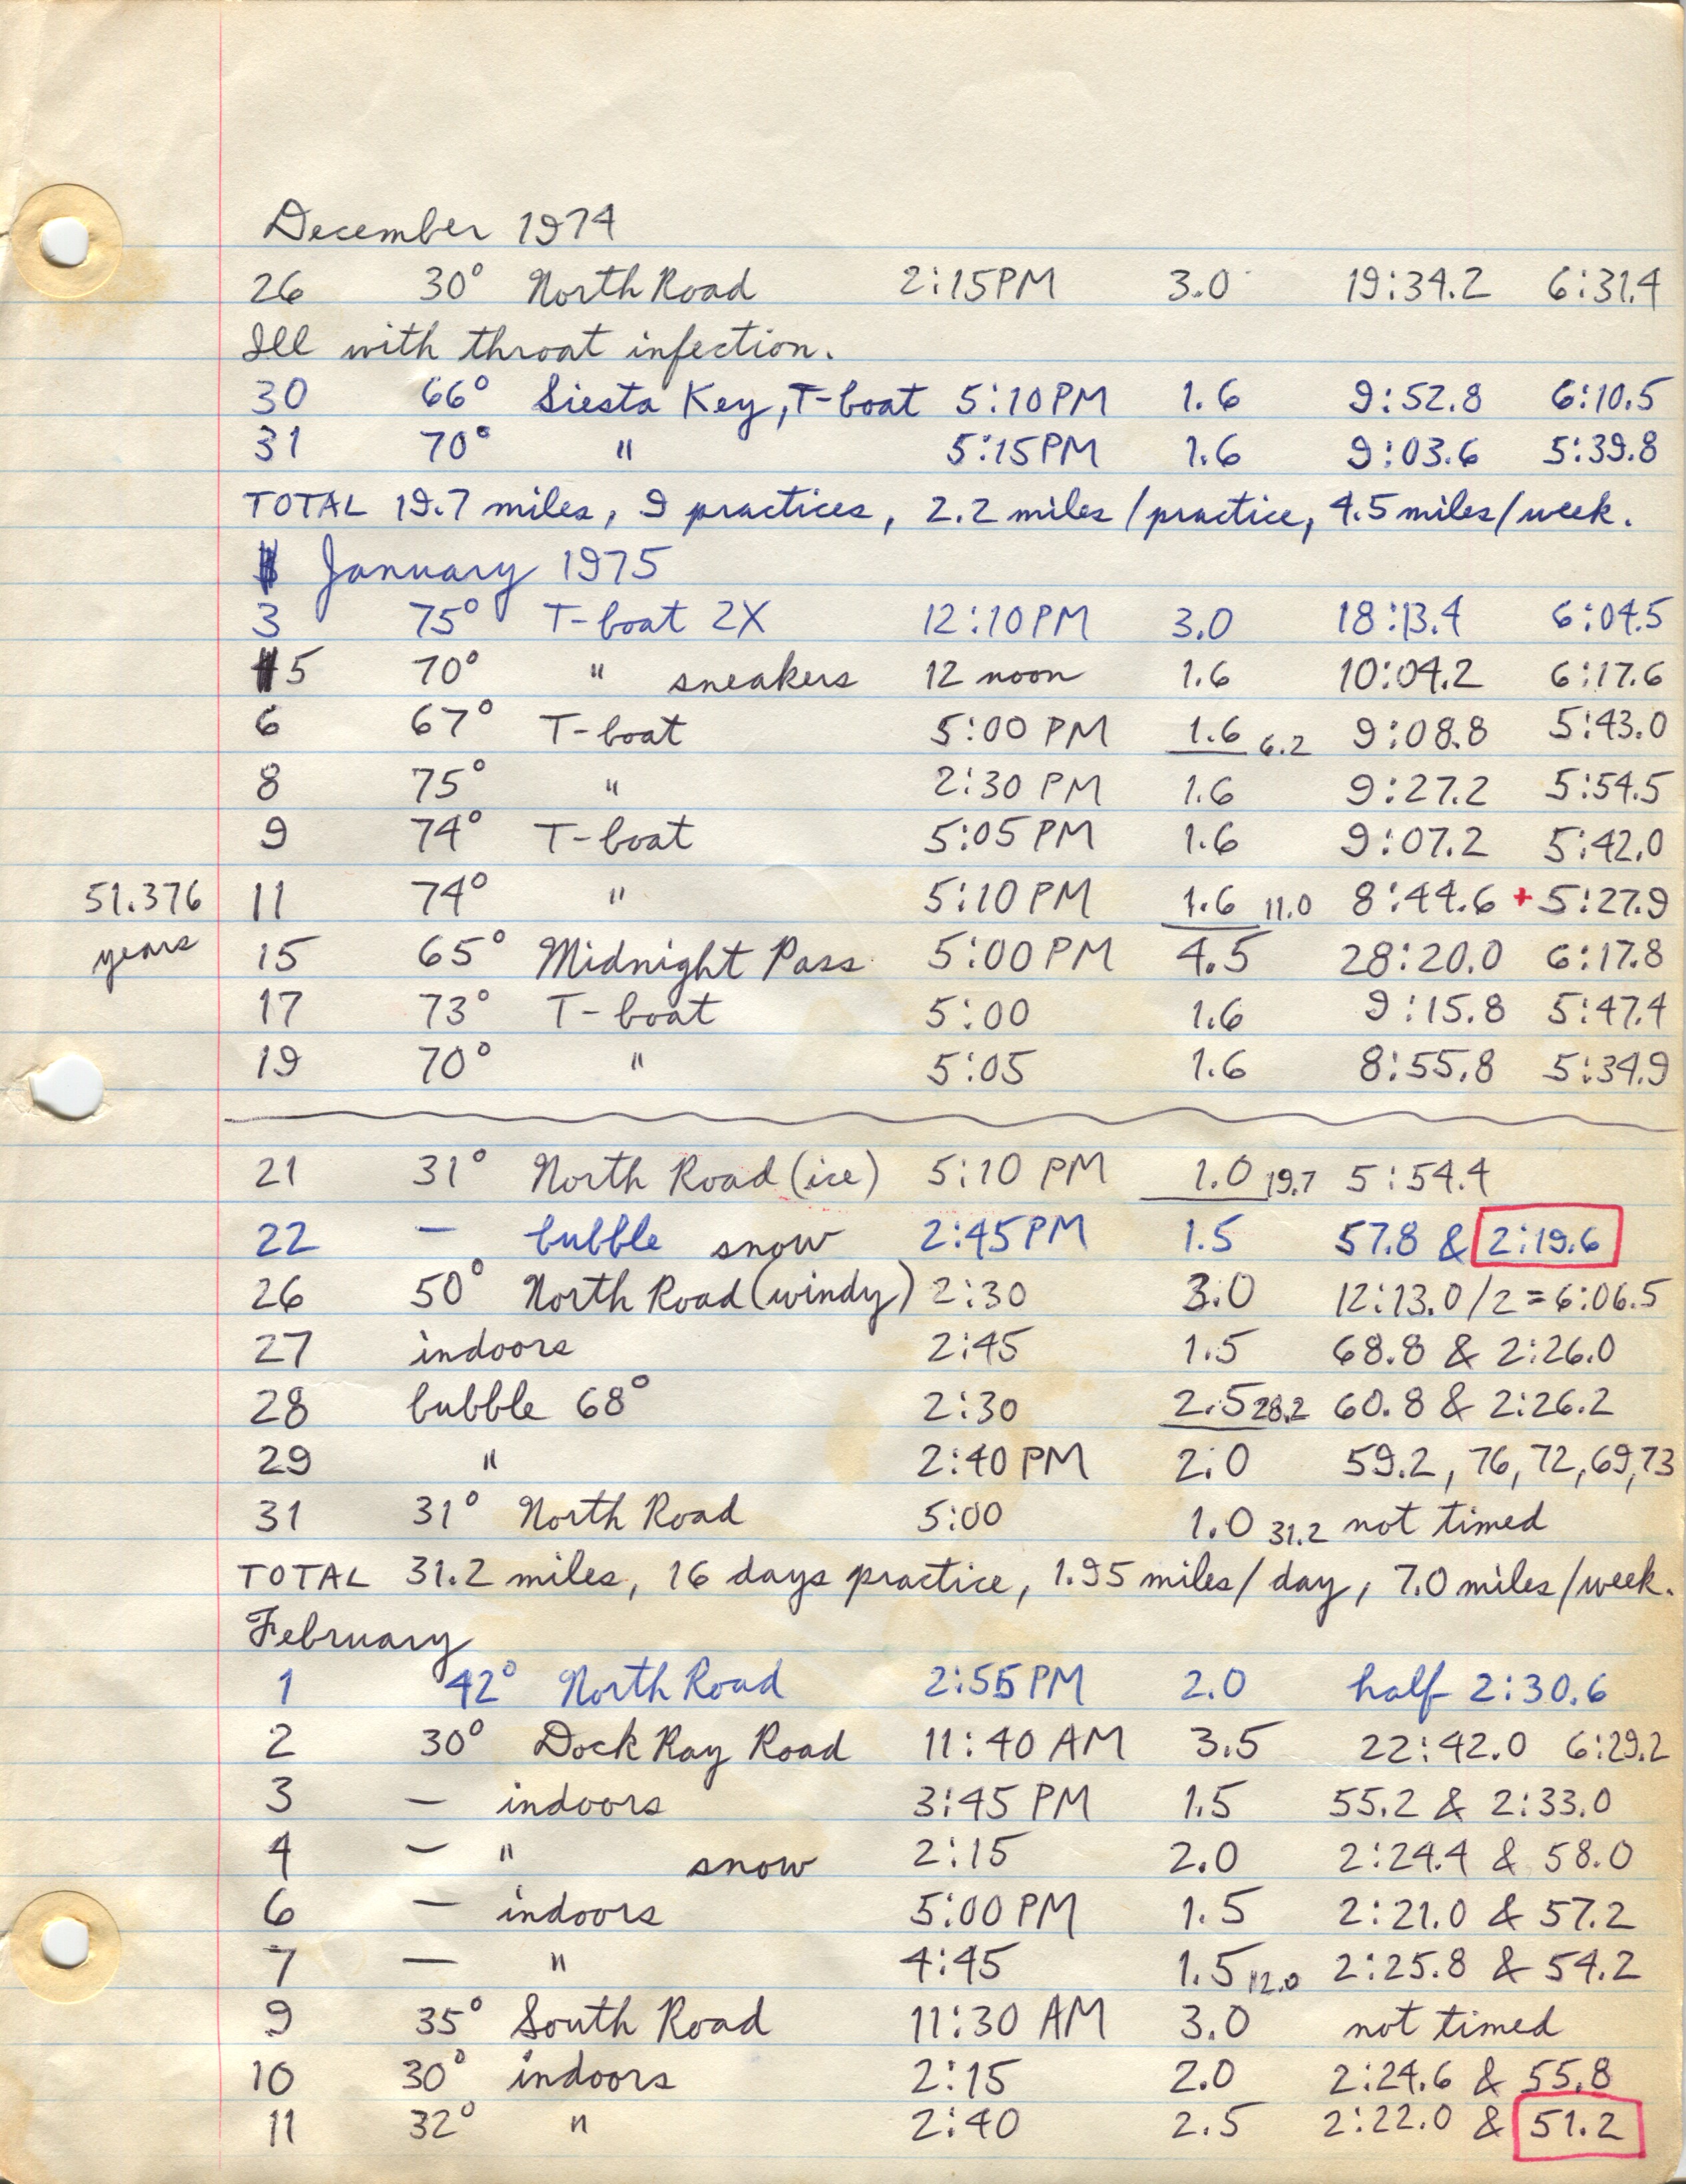 December 1974
26 30° North Road 2:15PM 3.0 19:34.2 6:31.4
Ill with throat infection.
30 66° Siesta Key, T-boat 5:10PM 1.6 9:52.8 6:10.5
31 70° " 5:15PM 1.6 9:03.6 5:39.8
TOTAL 19.7 miles, 9 practices, 2.2 miles/practice, 4.5 miles/week.
January 1975
3 75° T-boat 2X 12:10PM 3.0 18:13.4 6:04.5
5 70° " sneakers 12 noon 1.6 10:04.2 6:17.6
6 67° T-boat 5:00 PM 1.6 6.2 9:08.8 5:43.0
8 75° " 2:30 PM 1.6 9:27.2 5:54.5
9 74° T-boat 5:05 PM 1.6 9:07.2 5:42.0
51.376 11 74° " 5:10 PM 1.6 11.0 8:44.6 + 5:27.9
years 15 65° Midnight Pass 5:00PM 4.5 28:20.0 6:17.8
17 73° T-boat 5:00 1.6 9:15.8 5:47.4
19 70° " 5:05 1.6 8:55.8 5:34.9
21 31° North Road (ice) 5:10 PM 1.0 19.7 5:54.4
22 — bubble snow 2:45PM 1.5 57.8 & 2:19.6
26 50° North Road (windy) 2:30 3.0 12:13.0/2=6:06.5
27 indoors 2:45 1.5 68.8 & 2:26.0
28 bubble 68° 2:30 2.5 28.2 60.8 & 2:26.2
29 " 2:40 PM 2.0 59.2, 76, 72, 69, 73
31 31° North Road 5:00 1.0 31.2 not timed
TOTAL 31.2 miles, 16 days practice, 1.95 miles/day, 7.0 miles/week.
February
1 42° North Road 2:55PM 2.0 half 2:30.6
2 30° Dock Ray Road 11:40 AM 3.5 22:42.0 6:29.2
3 — indoors 3:45 PM 1.5 55.2 & 2:33.0
4 — " snow 2:15 2.0 2:24.4 & 58.0
6 — indoors 5:00PM 1.5 2:21.0 & 57.2
7 — " 4:45 1.5 12.0 2:25.8 & 54.2
9 35° South Road 11:30 AM 3.0 not timed
10 30° indoors 2:15 2.0 2:24.6 & 55.8
11 32° " 2:40 2.5 2:22.0 & 51.2